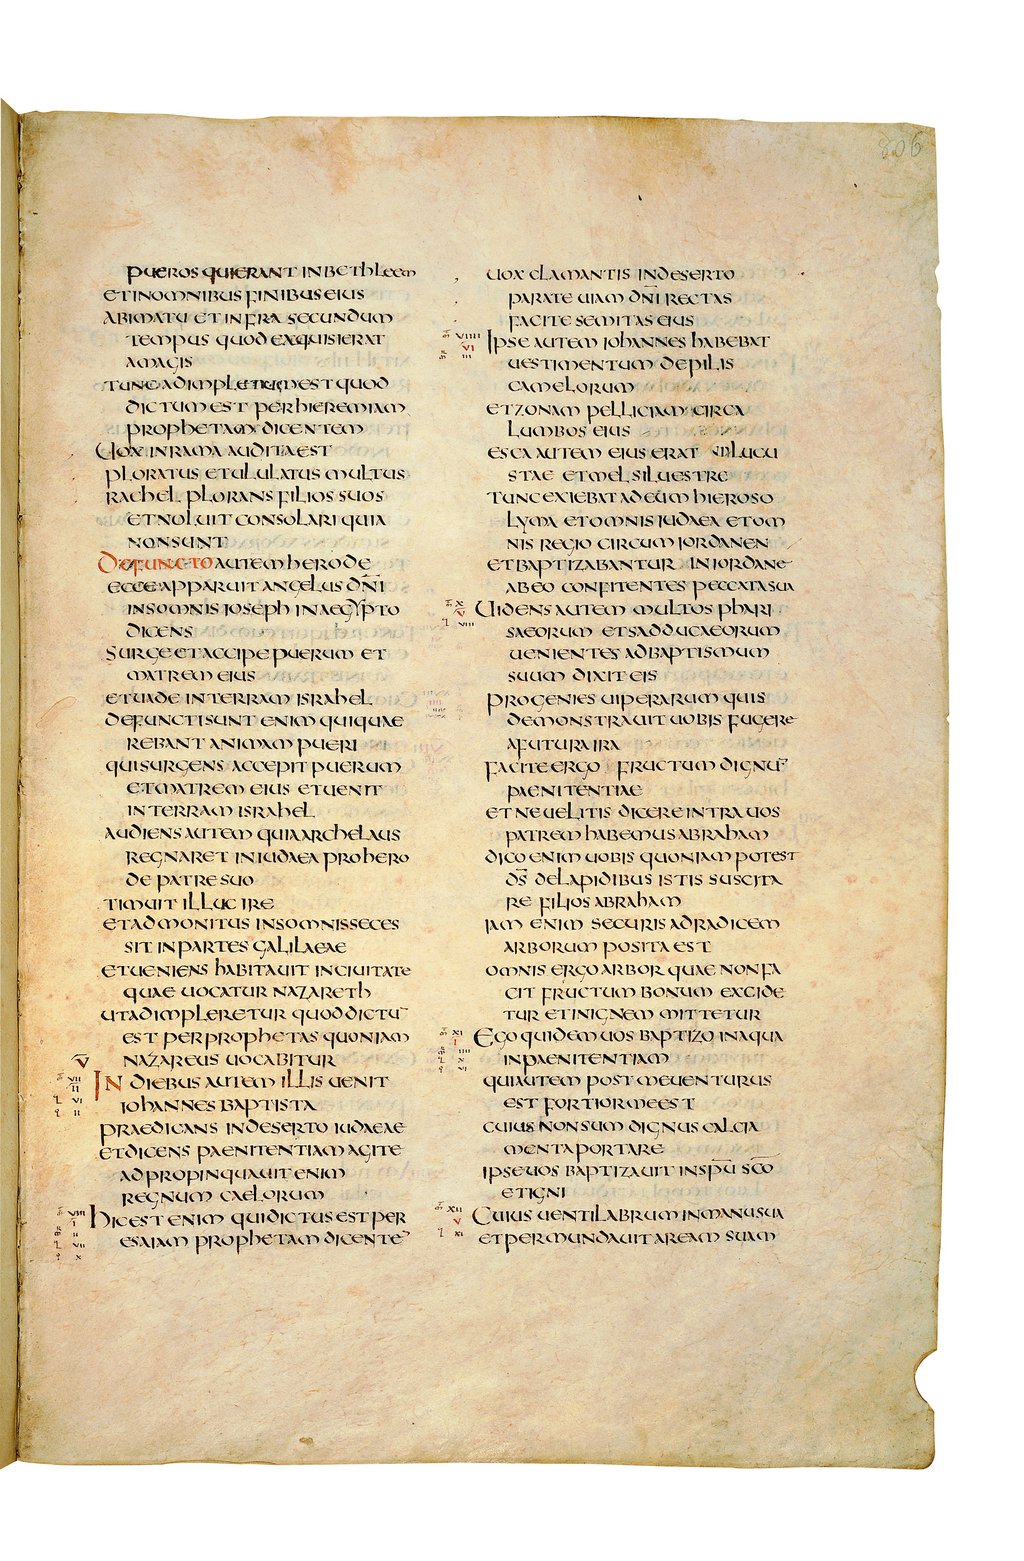 806
PUEROS QUI ERANT IN BETHLEEM
ET IN OMNIBUS FINIBUS EIUS
A BIMATU ET INFRA SECUNDUM
TEMPUS QUOD EXQUISIERAT
A MAGIS
TUNC ADIMPLETUM EST QUOD
DICTUM EST PER HIEREMIAM
PROPHETAM DICENTEM
UOX IN RAMA AUDITA EST
PLORATUS ET ULULATUS MULTUS
RACHEL PLORANS FILIOS SUOS
ET NOLUIT CONSOLARI QUIA
NON SUNT
DEFUNCTO AUTEM HERODE
ECCE APPARUIT ANGELUS DN̄I
IN SOMNIS IOSEPH IN AEGYPTO
DICENS
SURGE ET ACCIPE PUERUM ET
MATREM EIUS
ET UADE IN TERRAM ISRAHEL
DEFUNCTI SUNT ENIM QUI QUAE
REBANT ANIMAM PUERI
QUI SURGENS ACCEPIT PUERUM
ET MATREM EIUS ET UENIT
IN TERRAM ISRAHEL
AUDIENS AUTEM QUIA ARCHELAUS
REGNARET IN IUDAEA PRO HERO
DE PATRE SUO
TIMUIT ILLUC IRE
ET ADMONITUS IN SOMNIS SECES
SIT IN PARTES GALILAEAE
ET UENIENS HABITAUIT IN CIUITATE
QUAE UOCATUR NAZARETH
UT ADIMPLERETUR QUOD DICTU¯
EST PER PROPHETAS QUONIAM
NAZAREUS UOCABITUR
V̄
VII
II
VI
II
IN DIEBUS AUTEM ILLIS UENIT
IOHANNES BAPTISTA
PRAEDICANS IN DESERTO IUDAEAE
ET DICENS PAENITENTIAM AGITE
ADPROPINQUAUIT ENIM
REGNUM CAELORUM
VIII
I
II
VII
X
HIC EST ENIM QUI DICTUS EST PER
ESAIAM PROPHETAM DICENTE¯
UOX CLAMANTIS IN DESERTO
PARATE UIAM DN̄I RECTAS
FACITE SEMITAS EIUS
VIIII
VI
III
IPSE AUTEM IOHANNES HABEBAT
UESTIMENTUM DE PILIS
CAMELORUM
ET ZONAM PELLICIAM CIRCA
LUMBOS EIUS
ESCA AUTEM EIUS ERAT LUCU
STAE ET MEL SILUESTRE
TUNC EXIEBAT AD EUM HIEROSO
LYMA ET OMNIS IUDAEA ET OM
NIS REGIO CIRCUM IORDANEN
ET BAPTIZABANTUR IN IORDANE
AB EO CONFITENTES PECCATA SUA
X
V
VIII
UIDENS AUTEM MULTOS PHARI
SAEORUM ET SADDUCAEORUM
UENIENTES AD BAPTISMUM
SUUM DIXIT EIS
PROGENIES UIPERARUM QUIS
DEMONSTRAUIT UOBIS FUGERE
A FUTURA IRA
FACITE ERGO FRUCTUM DIGNU¯
PAENITENTIAE
ET NE UELITIS DICERE INTRA UOS
PATREM HABEMUS ABRAHAM
DICO ENIM UOBIS QUONIAM POTEST
DS̄ DE LAPIDIBUS ISTIS SUSCITA
RE FILIOS ABRAHAM
IAM ENIM SECURIS AD RADICEM
ARBORUM POSITA EST
OMNIS ERGO ARBOR QUAE NON FA
CIT FRUCTUM BONUM EXCIDE
TUR ET IN IGNEM MITTETUR
XI
I
IIII
X
VI
EGO QUIDEM UOS BAPTIZO IN AQUA
IN PAENITENTIAM
QUI AUTEM POST ME UENTURUS
EST FORTIOR ME EST
CUIUS NON SUM DIGNUS CALCIA
MENTA PORTARE
IPSE UOS BAPTIZAUIT IN SPŪ SC̄O
ET IGNI
XII
V
XI
CUIUS UENTILABRUM IN MANU SUA
ET PERMUNDAUIT AREAM SUAM